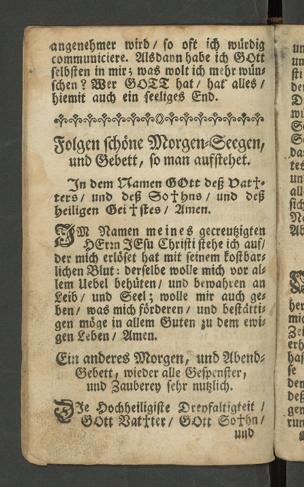 angenehmer wird / so oft ich würdig
communiciere. Alsdann habe ich GOtt
selbsten in mir; was wolt ich mehr wün-
schen? Wer GOTT hat / hat alles /
hiemit auch ein seeliges End.
Folgen schöne Morgen-Seegen,
und Gebett, so man aufstehet.
In dem Namen GOtt deß Vat†-
ters / und deß So†hns / und deß
heiligen Gei†stes / Amen.
IM Namen meines gecreutzigten
HErrn JEsu Christi stehe ich auf /
der mich erlöset hat mit seinem kostbar-
lichen Blut: derselbe wolle mich vor al-
lem Uebel behüten / und bewahren an
Leib / und Seel; wolle mir auch ge-
ben / was mich förderen / und bestätti-
gen möge in allem Guten zu dem ewi-
gen Leben / Amen.
Ein anderes Morgen, und Abend-
Gebett, wieder alle Gespenster,
und Zauberey sehr nutzlich.
DIe Hochheiligiste Dreyfaltigkeit /
GOtt Vat†ter / GOtt So†hn /
und